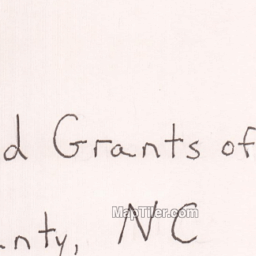 d Grants of
nty, NC
MapTiler.com